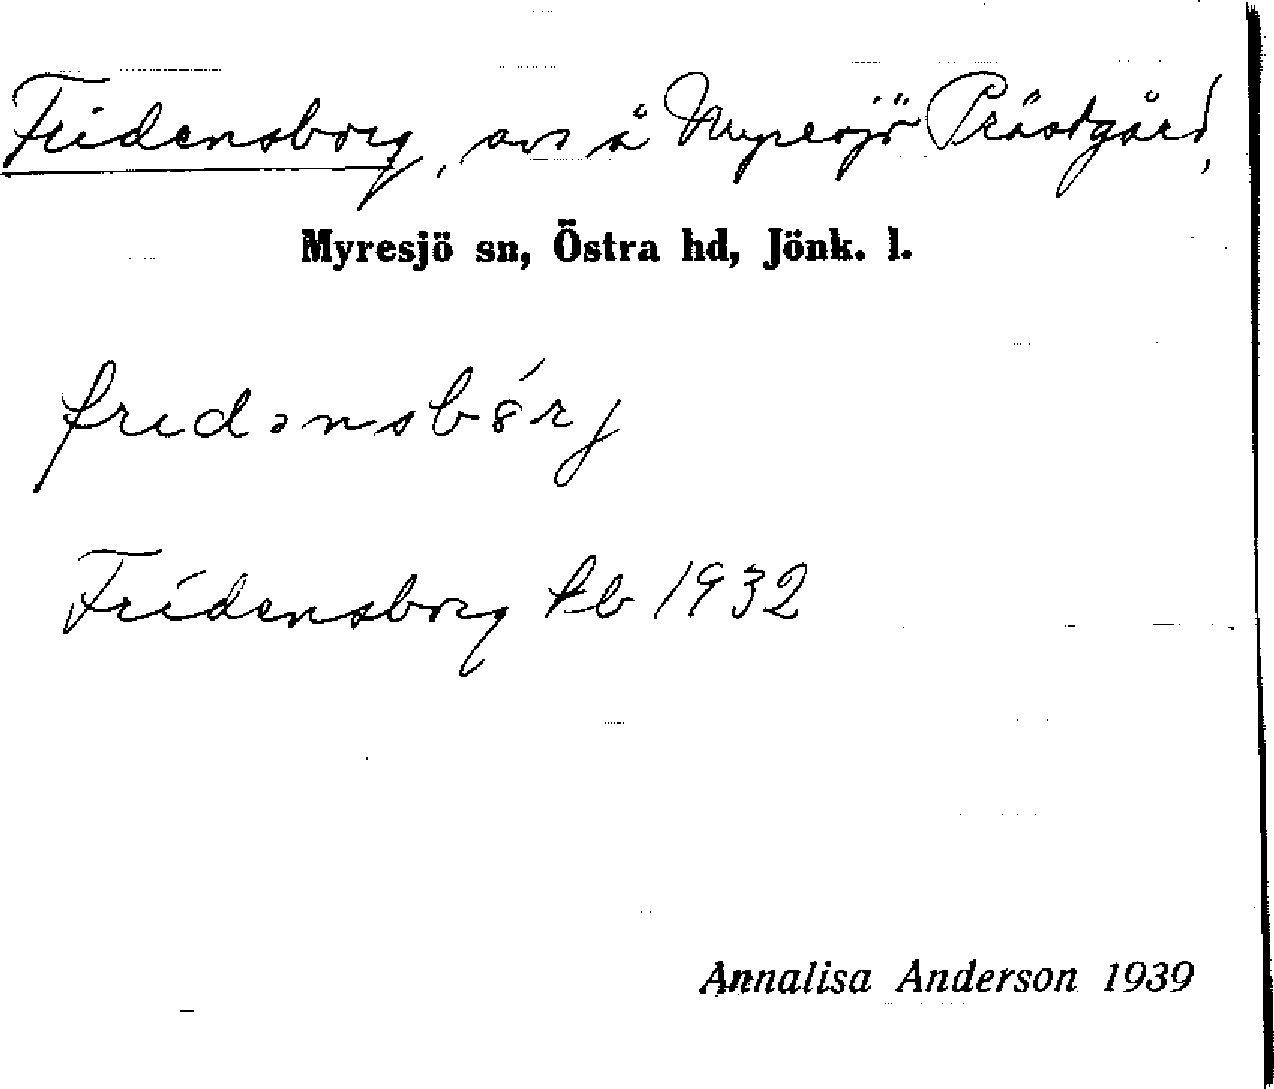 Fridensborg, avs å Myresjö Prästgård,
Myresjö sn, Östra hd, Jönk. l.
fridənsbórj
Fridensborg kb 1932
Annalisa Anderson 1939